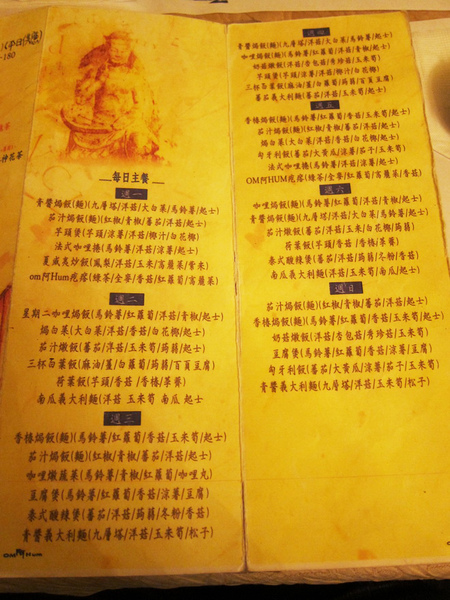 -180
每日主餐
週一
青醬焗飯(麵)(九層塔/洋菇/大白菜/馬鈴薯/起士)
茄汁焗飯(麵)(紅椒/青椒/蕃茄/洋菇/起士)
芋頭煲(芋頭/涼薯/洋菇/椰汁/白花椰)
法式咖哩捲(馬鈴薯/洋菇/涼薯/起士)
夏威夷炒飯(鳳梨/洋菇/玉米/高麗菜/素米)
om阿Hum疙瘩(綠茶/全麥/香菇/紅蘿蔔/高麗菜)
週二
星期二咖哩焗飯(馬鈴薯/紅蘿蔔/洋菇/青椒/起士)
焗白菜(大白菜/洋菇/香菇/白花椰/起士)
茄汁燉飯(蕃茄/洋菇/玉米筍/蒟蒻/起士)
三杯百葉飯(麻油/薑/白蘿蔔/蒟蒻/百頁豆腐)
荷葉飯(芋頭/香菇/香椿/草蓃)
南瓜義大利麵(洋菇 玉米筍 南瓜 起士
週三
香椿焗飯(麵)(馬鈴薯/紅蘿蔔/香菇/玉米筍/起士)
茄汁焗飯(麵)(紅椒/青椒/蕃茄/洋菇/起士)
咖哩燉蔬菜(馬鈴薯/青椒/紅蘿蔔/咖哩丸)
豆腐煲(馬鈴薯/紅蘿蔔/香菇/涼薯/豆腐)
泰式酸辣煲(蕃茄/洋菇/蒟蒻/冬粉/香菇)
青醬義大利麵(九層塔/洋菇/玉米筍/松子)
週四
青醬焗飯(麵)(九層塔/洋菇/大白菜/馬鈴薯/起士)
咖哩焗飯(馬鈴薯/紅蘿蔔/洋菇/青椒/起士)
奶菇燉飯(洋菇/杏包菇/秀珍菇/玉米筍)
芋頭煲(芋頭/涼薯/洋菇/椰汁/白花椰)
三杯百葉飯(麻油/薑/白蘿蔔/蒟蒻/百頁豆腐)
蕃茄義大利麵(蕃茄/洋菇/玉米筍/起士)
週五
香椿焗飯(麵)(馬鈴薯/紅蘿蔔/香菇/玉米筍/起士)
茄汁焗飯(麵)(紅椒/青椒/蕃茄/洋菇/起士)
焗白菜(大白菜/洋菇/香菇/白花椰/起士)
匈牙利飯(蕃茄/大黃瓜/涼薯/茄子/玉米筍)
法式咖哩捲(馬鈴薯/洋菇/涼薯/起士)
OM阿HUM疙瘩(綠茶/全麥/紅蘿蔔/高麗菜/香菇)
週六
咖哩焗飯(麵)(馬鈴薯/紅蘿蔔/洋菇/青椒/起士)
青醬焗飯(麵)(九層塔/洋菇/大白菜/馬鈴薯/起士)
茄汁燉飯(蕃茄/洋菇/玉米筍/白花椰/蒟蒻)
荷葉飯(芋頭/香菇/香椿/草蓃)
泰式酸辣煲(蕃茄/洋菇/蒟蒻/冬粉/香菇)
南瓜義大利麵(洋菇/玉米筍/南瓜/起士)
週日
茄汁焗飯(麵)(紅椒/青椒/蕃茄/洋菇/起士)
香椿焗飯(麵)(馬鈴薯/紅蘿蔔/香菇/玉米筍/起士)
奶菇燉飯(洋菇/杏包菇/秀珍菇/玉米筍)
豆腐煲(馬鈴薯/紅蘿蔔/香菇/涼薯/豆腐)
匈牙利飯(蕃茄/大黃瓜/涼薯/茄子/玉米筍)
青醬義大利麵(九層塔/洋菇/玉米筍/松子)